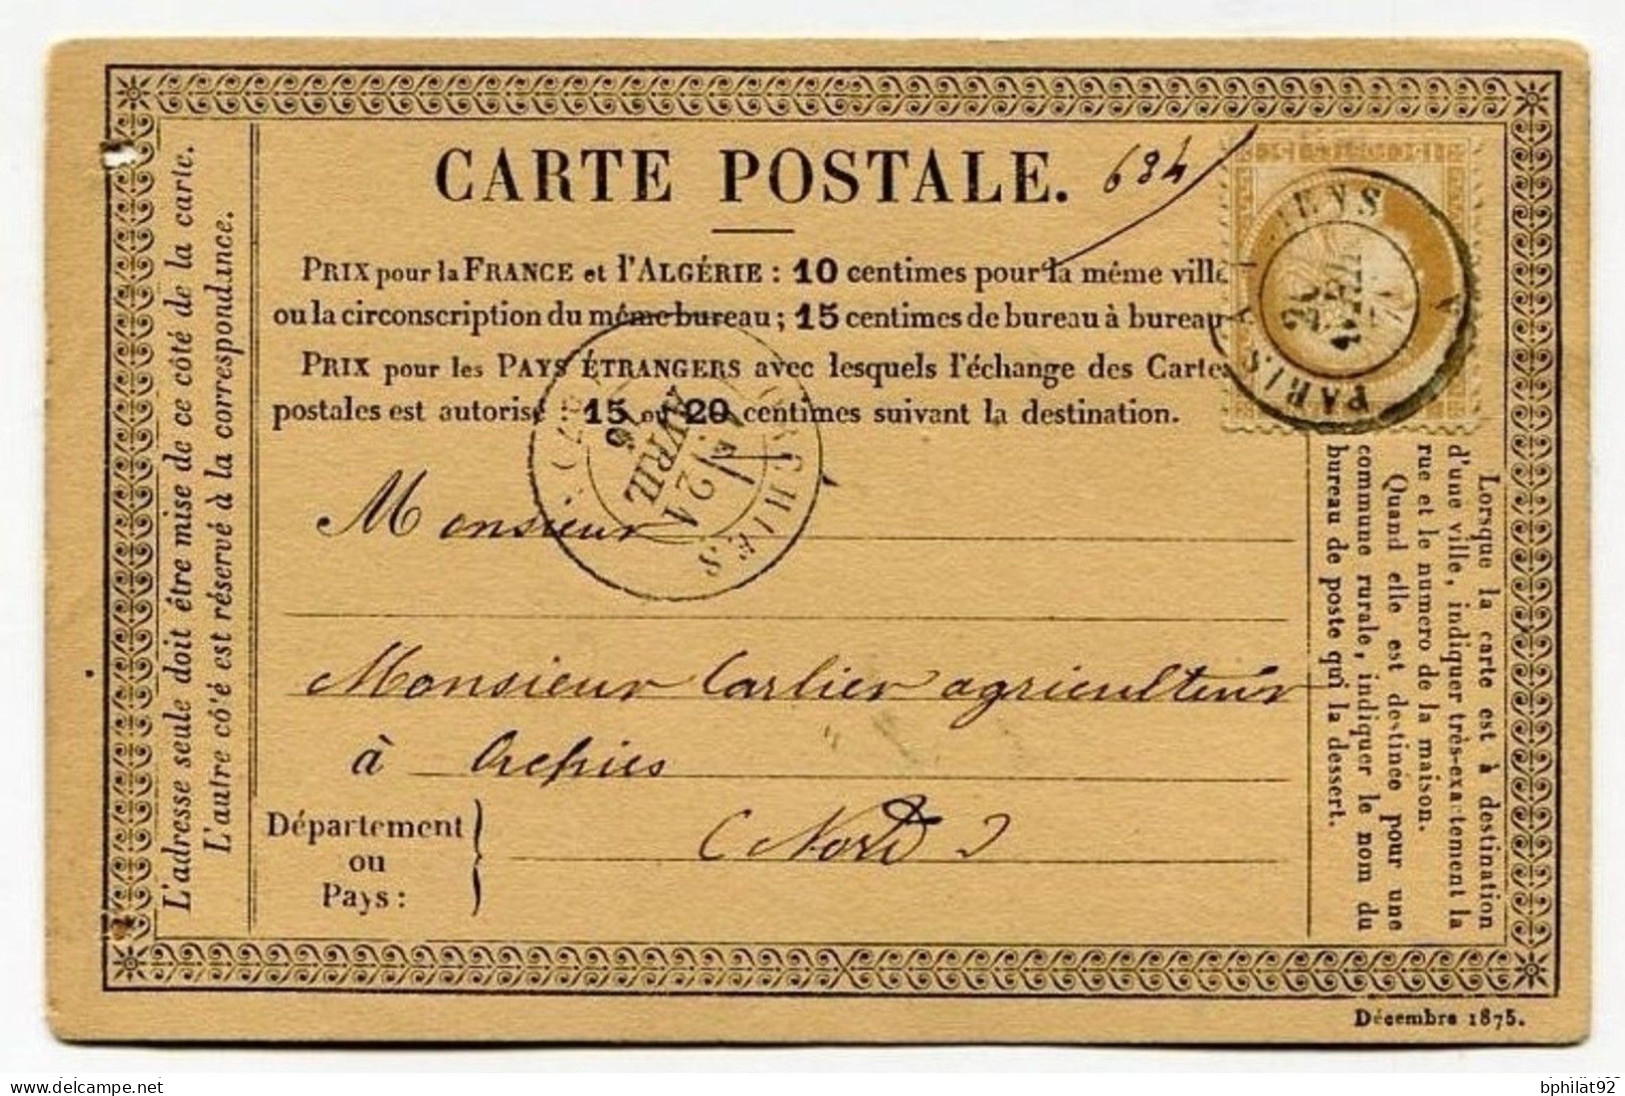 CARTE POSTALE.
684
PRIX pour la FRANCE et l'ALGÉRIE : 10 centimes pour la même ville
ou la circonscription du même bureau ; 15 centimes de bureau à bureau
PRIX pour les PAYS ÉTRANGERS avec lesquels l'échange des Cartes
postales est autorisé 15 ou 20 centimes suivant la destination.
L'adresse seule doit être mise de ce côté de la carte.
L'autre cô'é est réservé à la correspondance.
PARIS
ORCHIES
21
AVRIL
76
Monsieur
Monsieur Carlier agriculteur
à Orchies
Département
ou
Pays :
(Nord)
Lorsque la carte est à destination
d'une ville, indiquer très-exactement la
rue et le numero de la maison.
Quand elle est destinée pour une
commune rurale, indiquer le nom du
bureau de poste qui la dessert.
Décembre 1875.
delcampe.net
bphilat92